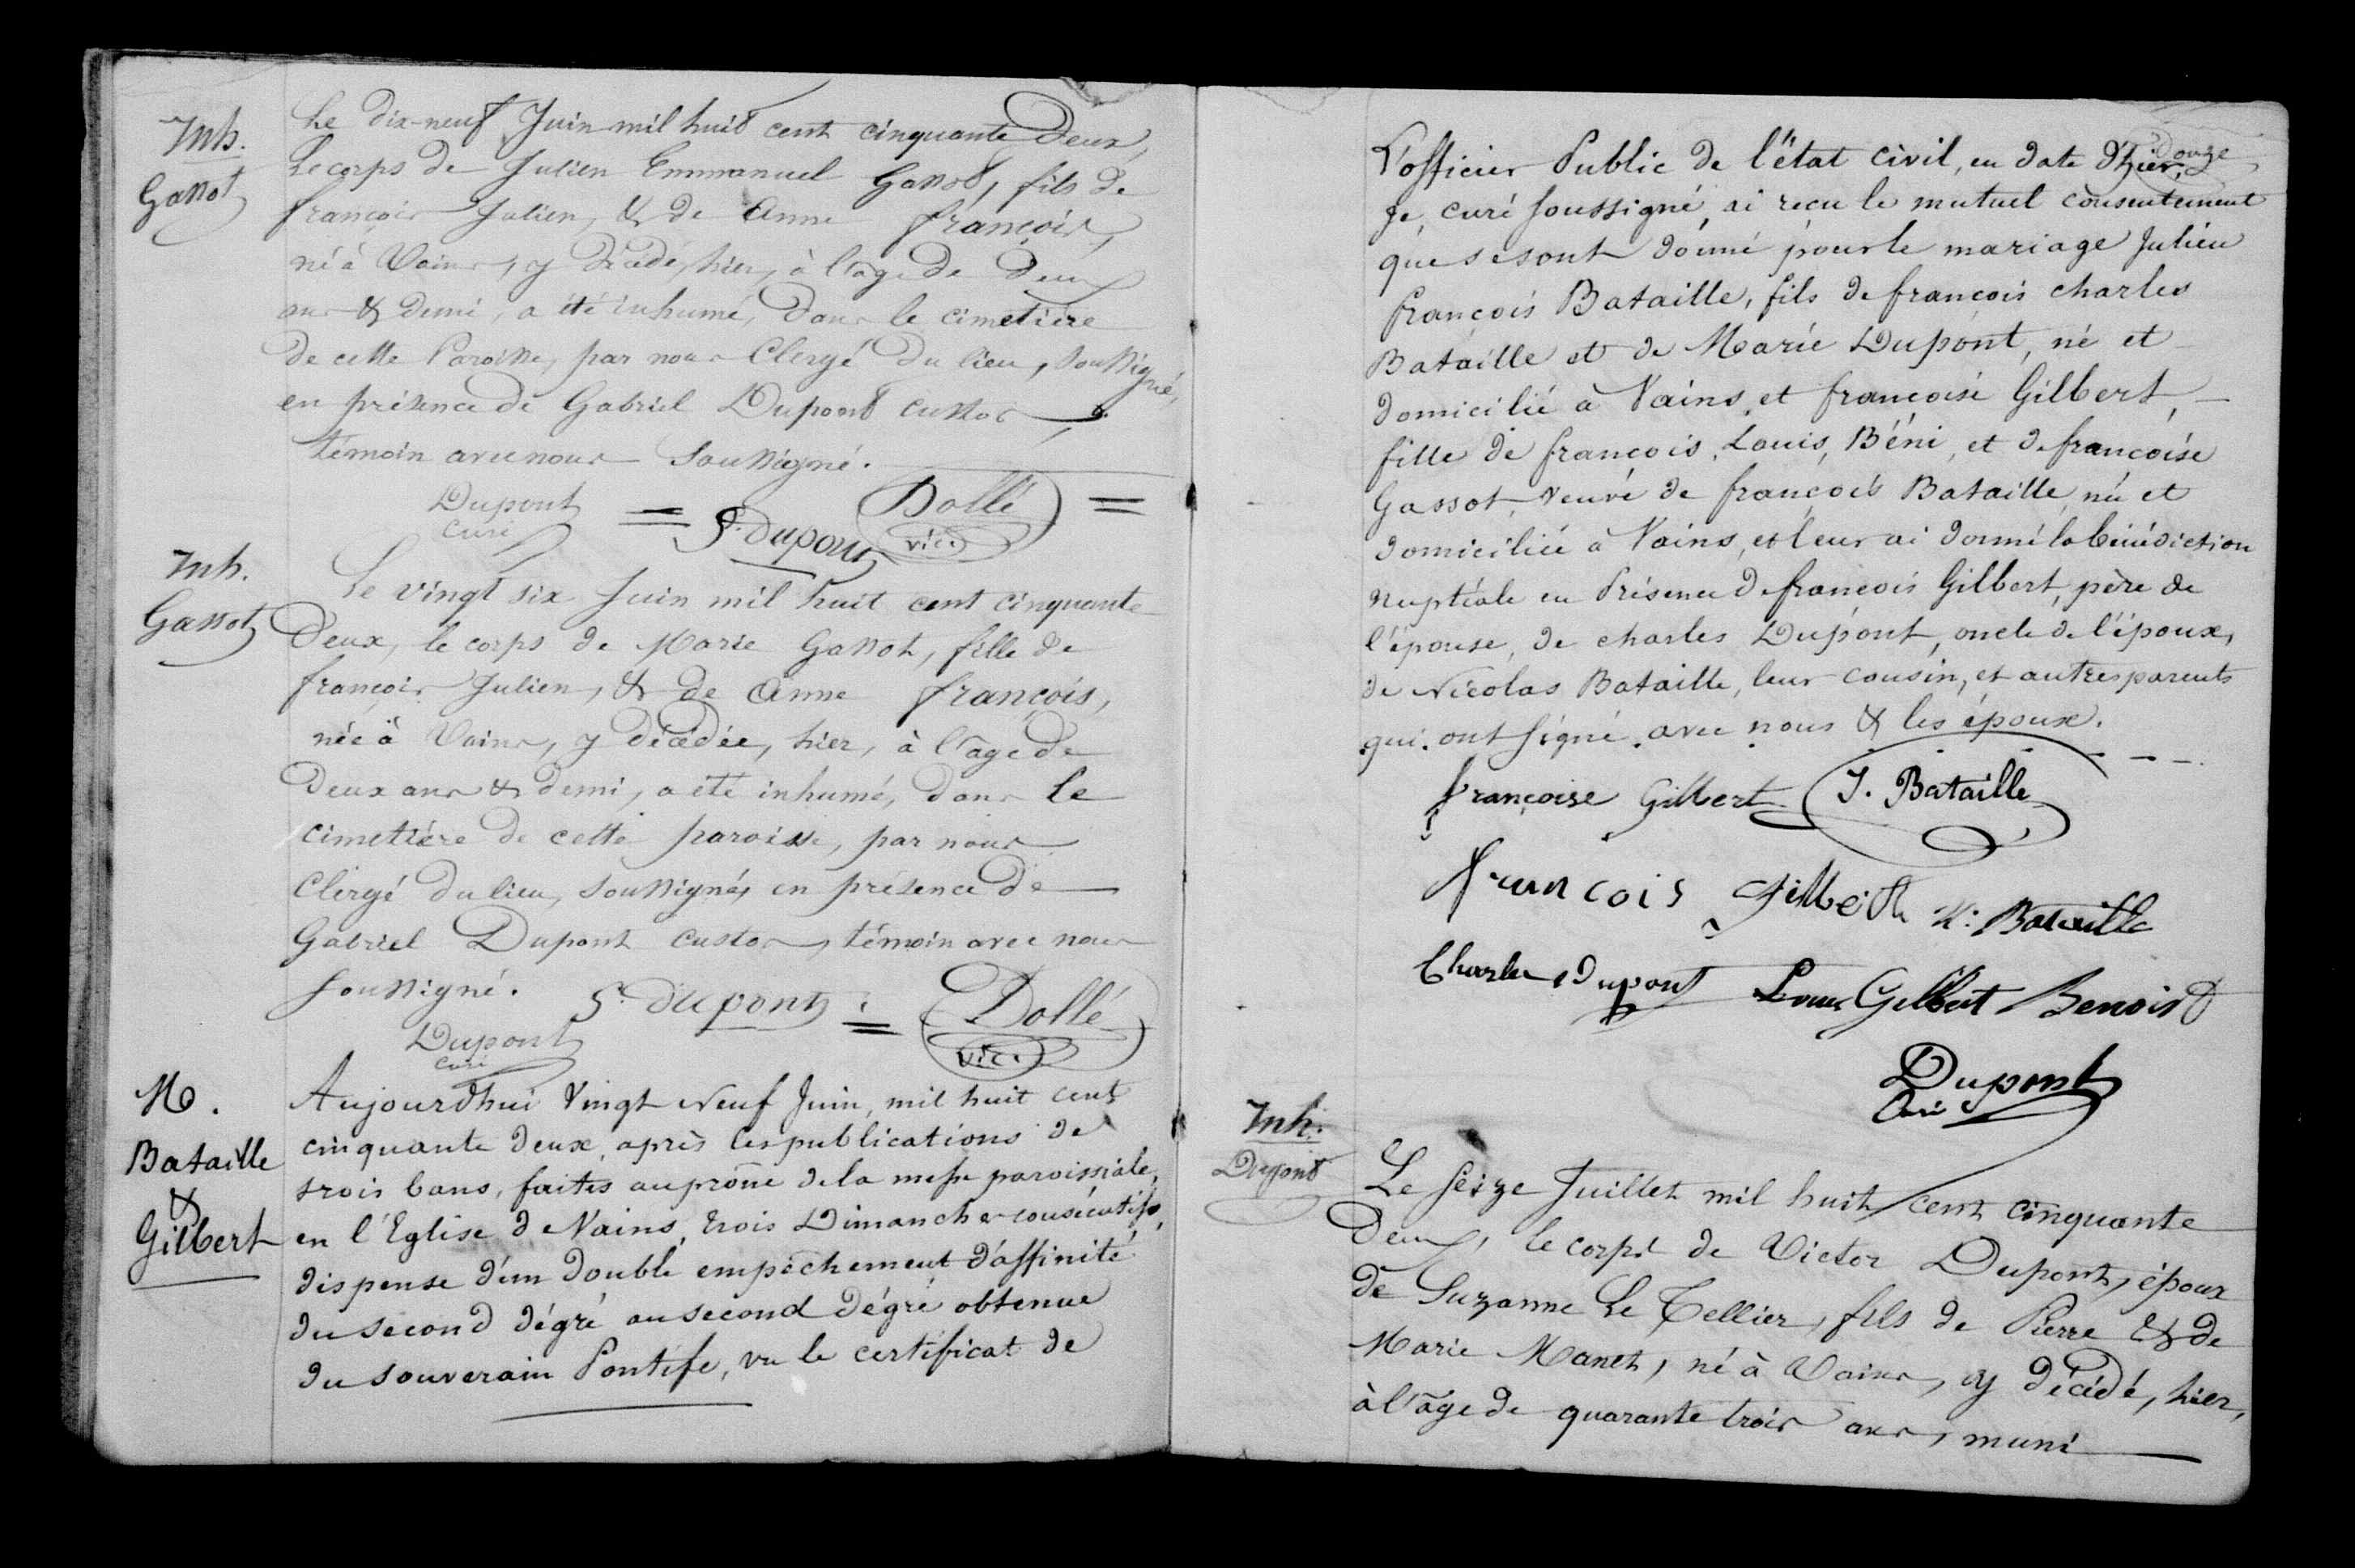 Inh.
Gassot
Le dix-neuf Juin mil huit cent cinquante Deux,
Le corps de Julien Emmanuel Gassot, fils de
françois Julien, & de Anne françois,
né à Vains, y décédé, hier, à l'age de Deux
ans & Demi, a été inhumé, Dans le cimetière
de cette Paroisse, par nous Clergé du lieu, soussigné,
en présence de Gabriel Dupont custos
témoin avec nous soussigné.
Dupont
curé
G. dupont
Dollé
vic.
Inh.
Gassot
Le vingt six Juin mil huit cent cinquante
Deux, le corps de Marie Gassot, fille de
françois Julien, & de Anne françois,
née à Vains, y décédée, hier, à l'age de
Deux ans & demi, a été inhumé, dans le
cimetière de cette paroisse, par nous
Clergé du lieu, soussigné, en présence de
Gabriel Dupont custos, témoin avec nous
soussigné.
G. dupont
Dollé
vic.
Dupont
curé
M.
Bataille
&
Gilbert
Aujourdhui Vingt Neuf Juin, mil huit cent
cinquante deux, après les publications de
trois bans, faites au prône de la messe paroissiale,
en l'Eglise de Vains, trois Dimanches consécutifs,
dispense d'un double empêchement d'affinité
du second dégré au second dégré obtenue
du souverain Pontife, vu le certificat de
l'officier Public de l'état civil, en date d'hier, douze
je, curé soussigné, ai recu le mutuel consentement
que se sont donné pour le mariage Julien
françois Bataille, fils de françois charles
Bataille et de Marie Dupont, né et
domicilié à Vains, et françoise Gilbert,
fille de françois, Louis, Béni, et de françoise
Gassot, veuve de françois Bataille, née et
domiciliée à Vains, et leur ai donné la bénédiction
nuptiale en Présence de françois Gilbert, père de
l'épouse, de charles Dupont, oncle de l'époux,
de Nicolas Bataille, leur cousin, et autres parents
qui ont signé avec nous & les époux.
françoise Gilbert J. Bataille
francois Gilbert N: Bataille
Charles dupont Louis Gilbert Benoist
Dupont
Curé
Inh.
Dupont
Le seize Juillet mil huit cent cinquante
Deux, le corps de Victor Dupont, époux
de Suzanne Le Tellier, fils de Pierre & de
Marie Manet, né à Vains, y décédé, hier,
à l'âge de quarante trois ans, muni